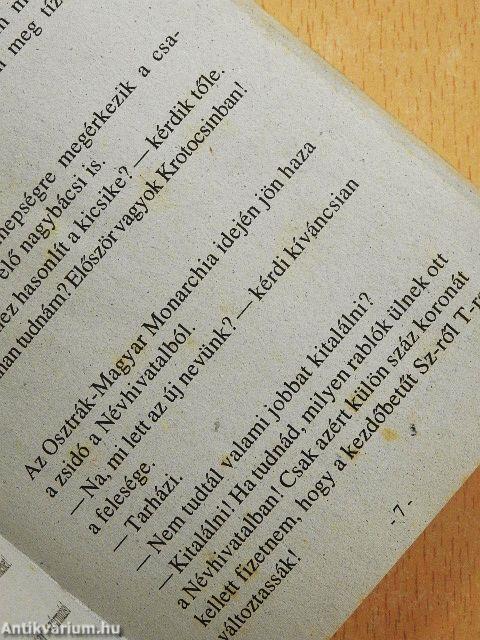 n m
n meg tíz
nepségre megérkezik a csa-
elő nagybácsi is.
hez hasonlít a kicsike? — kérdik tőle.
nan tudnám? Először vagyok Krotocsinban!
Az Osztrák-Magyar Monarchia idején jön haza
a zsidó a Névhivatalból.
— Na, mi lett az új nevünk? — kérdi kíváncsian
a felesége.
— Tarházi.
— Nem tudtál valami jobbat kitalálni?
— Kitalálni! Ha tudnád, milyen rablók ülnek ott
a Névhivatalban! Csak azért külön száz koronát
kellett fizetnem, hogy a kezdőbetűt Sz-ről T-re
változtassák!
- 7 -
Antikvarium.hu